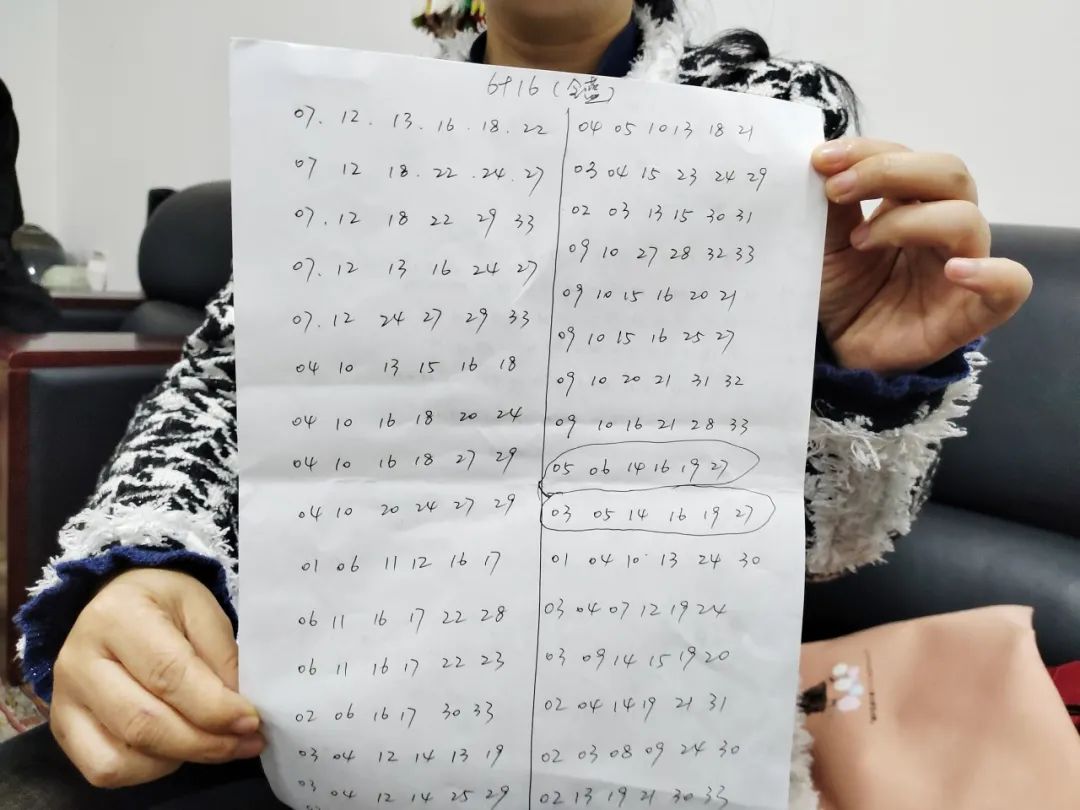 6+16(全蓝)
07. 12. 13. 16. 18. 22
07 12 18. 22. 24. 27
07. 12 18 22 29 33
07. 12 13 16 24 27
07. 12 24 27 29 33
04 10 13 15 16 18
04 10 16 18 20 24
04 10 16 18 27 29
04 10 20 24 27 29
01 06 11 12 16 17
06 11 16 17 22 28
06 11 16 17 22 23
02 06 16 17 30 33
03 04 12 14 13 19
03 04 12 14 25 29
04 05 10 13 18 21
03 04 15 23 24 29
02 03 13 15 30 31
09 10 27 28 32 33
09 10 15 16 20 21
09 10 15 16 25 27
09 10 20 21 31 32
09 10 16 21 28 33
05 06 14 16 19 27
03 05 14 16 19 27
01 04 10 13 24 30
03 04 07 12 19 24
03 09 14 15 19 20
02 04 14 19 21 31
02 03 08 09 24 30
02 13 19 21 30 33